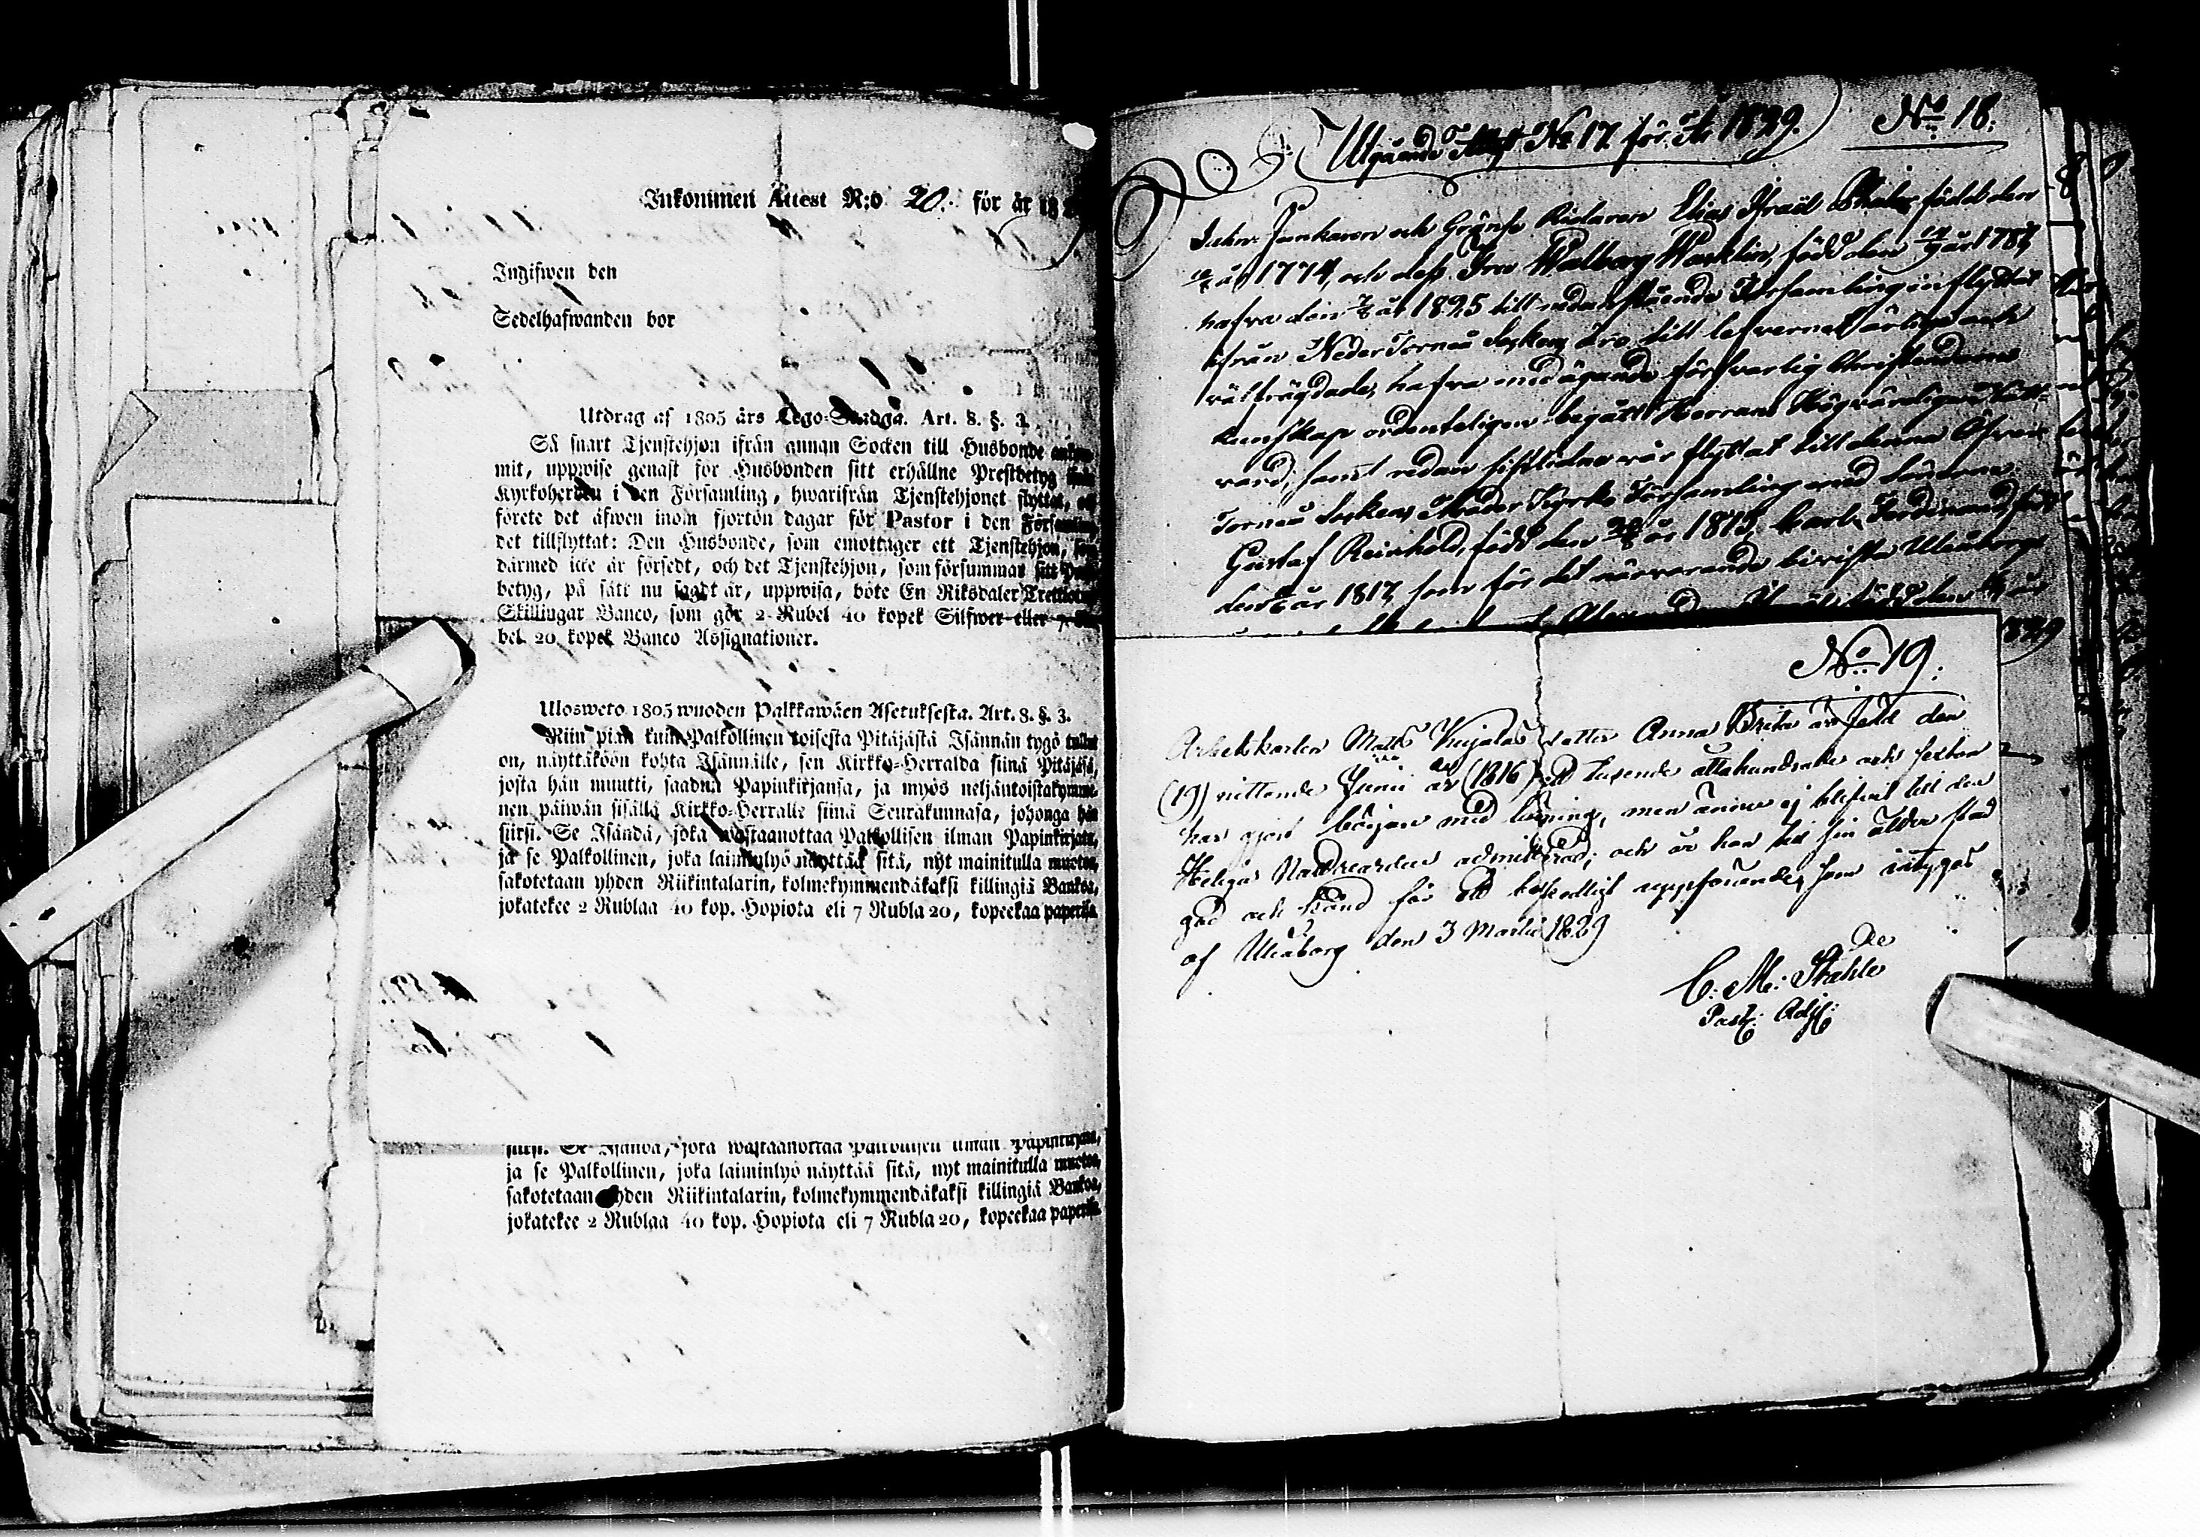 Inkommen Attest N:o 20. för år 18
Ingifwen den
Sedelhafwanden bor
Utdrag af 1805 års Lego-Stadga. Art. 8. §. 3.
Så snart Tjenstehjon ifrån annan Socken till Husbonde
mit, uppwise genast för Husbonden sitt erhållne Prestbetyg
Kyrkoherden i den Församling, hwarifrån Tjenstehjonet flyttat,
förete det äfwen inom fjorton dagar för Pastor i den
det tillflyttat: Den Husbonde, som emottager ett Tjenstehjon,
därmed icke är försedt, och det Tjenstehjon, som försummar sitt
betyg, på sätt nu sagdt är, uppwisa, böte En Riksdaler
Skillingar Banco, som gör 2 Rubel 40 kopek Silfwer eller 7
bel 20 kopek Banco Assignationer.
Ulosweto 1805 wuoden Palkkawäen Asetuksesta. Art. 8. §. 3.
Niin pian kuin Palkollinen toisesta Pitäjästä Isännän tygö tullut
on, näyttäköön kohta Isännälle, sen Kirkko-Herralda siinä Pitäjäsä,
josta hän muutti, saadun Papinkirjansa, ja myös neljäntoistakymme-
nen päiwän sisällä Kirkko-Herralle siinä Seurakunnasa, johonga hän
siirsi. Se Isändä, joka wastaanottaa Palkollisen ilman Papinkirjata,
ja se Palkollinen, joka laiminlyö näyttää sitä, nyt mainitulla muotoa,
sakotetaan yhden Riikintalarin, kolmekymmendäkaksi killingiä Bankoa,
jokatekee 2 Rublaa 40 kop. Hopiota eli 7 Rubla 20, kopeekaa paperisa.
siirsi. Se Isändä, joka wastaanottaa Palkollisen ilman Papinkirjata,
ja se Palkollinen, joka laiminlyö näyttää sitä, nyt mainitulla muotoa,
sakotetaan yhden Riikintalarin, kolmekymmendäkaksi killingiä Bankoa,
jokatekee 2 Rublaa 40 kop. Hopiota eli 7 Rubla 20, kopeekaa paperisa.
Utgående Attest No 17 för År 1829. No 18.
Junkaren och Gränse Ridaren Elias Israel född den
år 1774, och dess Fru Walborg Wacklin, född den år 1787
hafva den år 1825 till nedanstående Församling inflyttat
ifrån Neder Torneå Socken, äro till lefvernet ärlige och
välfrägdade, hafva med ägande försvarlig Christendoms
kunskap ordenteligen begått Herrans Högvärdiga Natt-
vard, samt redan sistlidne vår flyttat till denna Öfver
Torneå Sockens Moder Kyrko Församling med Sönerna
Gustaf Reinhold, född den år 1815, Carl Ferdinand född
den år 1817, som för det närvarande bivista Uleåborgs
No 19.
Arbetskarlen Matts Kujalas dotter Anna Brita är född den
(19) nittonde Junii år (1816) ett tusende åttahundrade och sexton
har gjort början med läsning, men ännu ej blifvit till den
Heliga Nattvarden admitterad; och är hon till sin ålder stad
god och känd för ett uppförande, som intygas
af Uleåborg den 3 Martii 1829
C. M. Ståhle
Past: Adj: